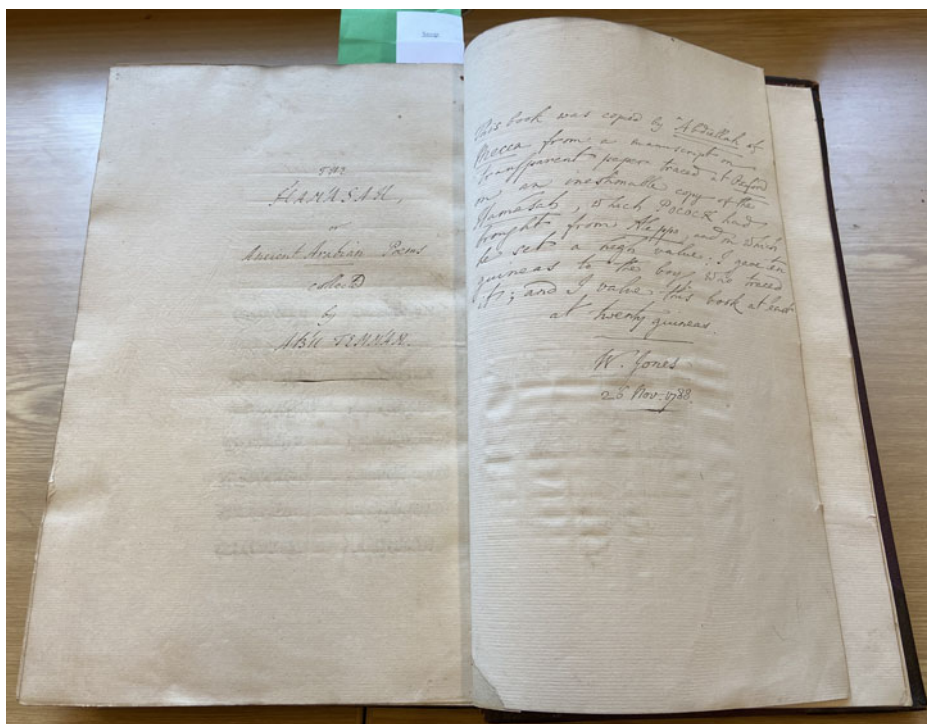 THE
HAMASAH,
or
Ancient Arabian Poems
collected
by
ABU TEMMAM.
This book was copied by Abdellah of
Mecca from a manuscript on
transparent paper traced at Oxford
on an inestimable copy of the
Hamasah, which Pocock had
brought from Aleppo, and on which
he set a high value: I gave ten
guineas to the boy, who traced
it; and I value this book at least
at twenty guineas.
W. Jones
26 Nov. 1788.